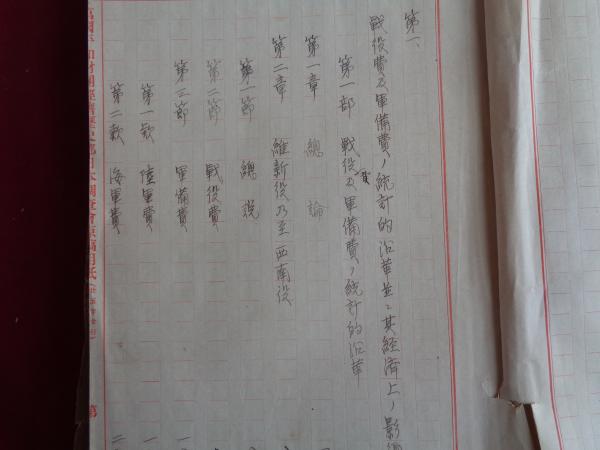 第一、
戦役費及軍備費ノ統計的沿革並ニ其経済上ノ影
第一部 戦役費及軍備費ノ統計的沿革
第一章 總論
第二章 維新役乃至西南役
第一節 總説
第二節 戦役費
第三節 軍備費
第一款 陸軍費
第二款 海軍費
第